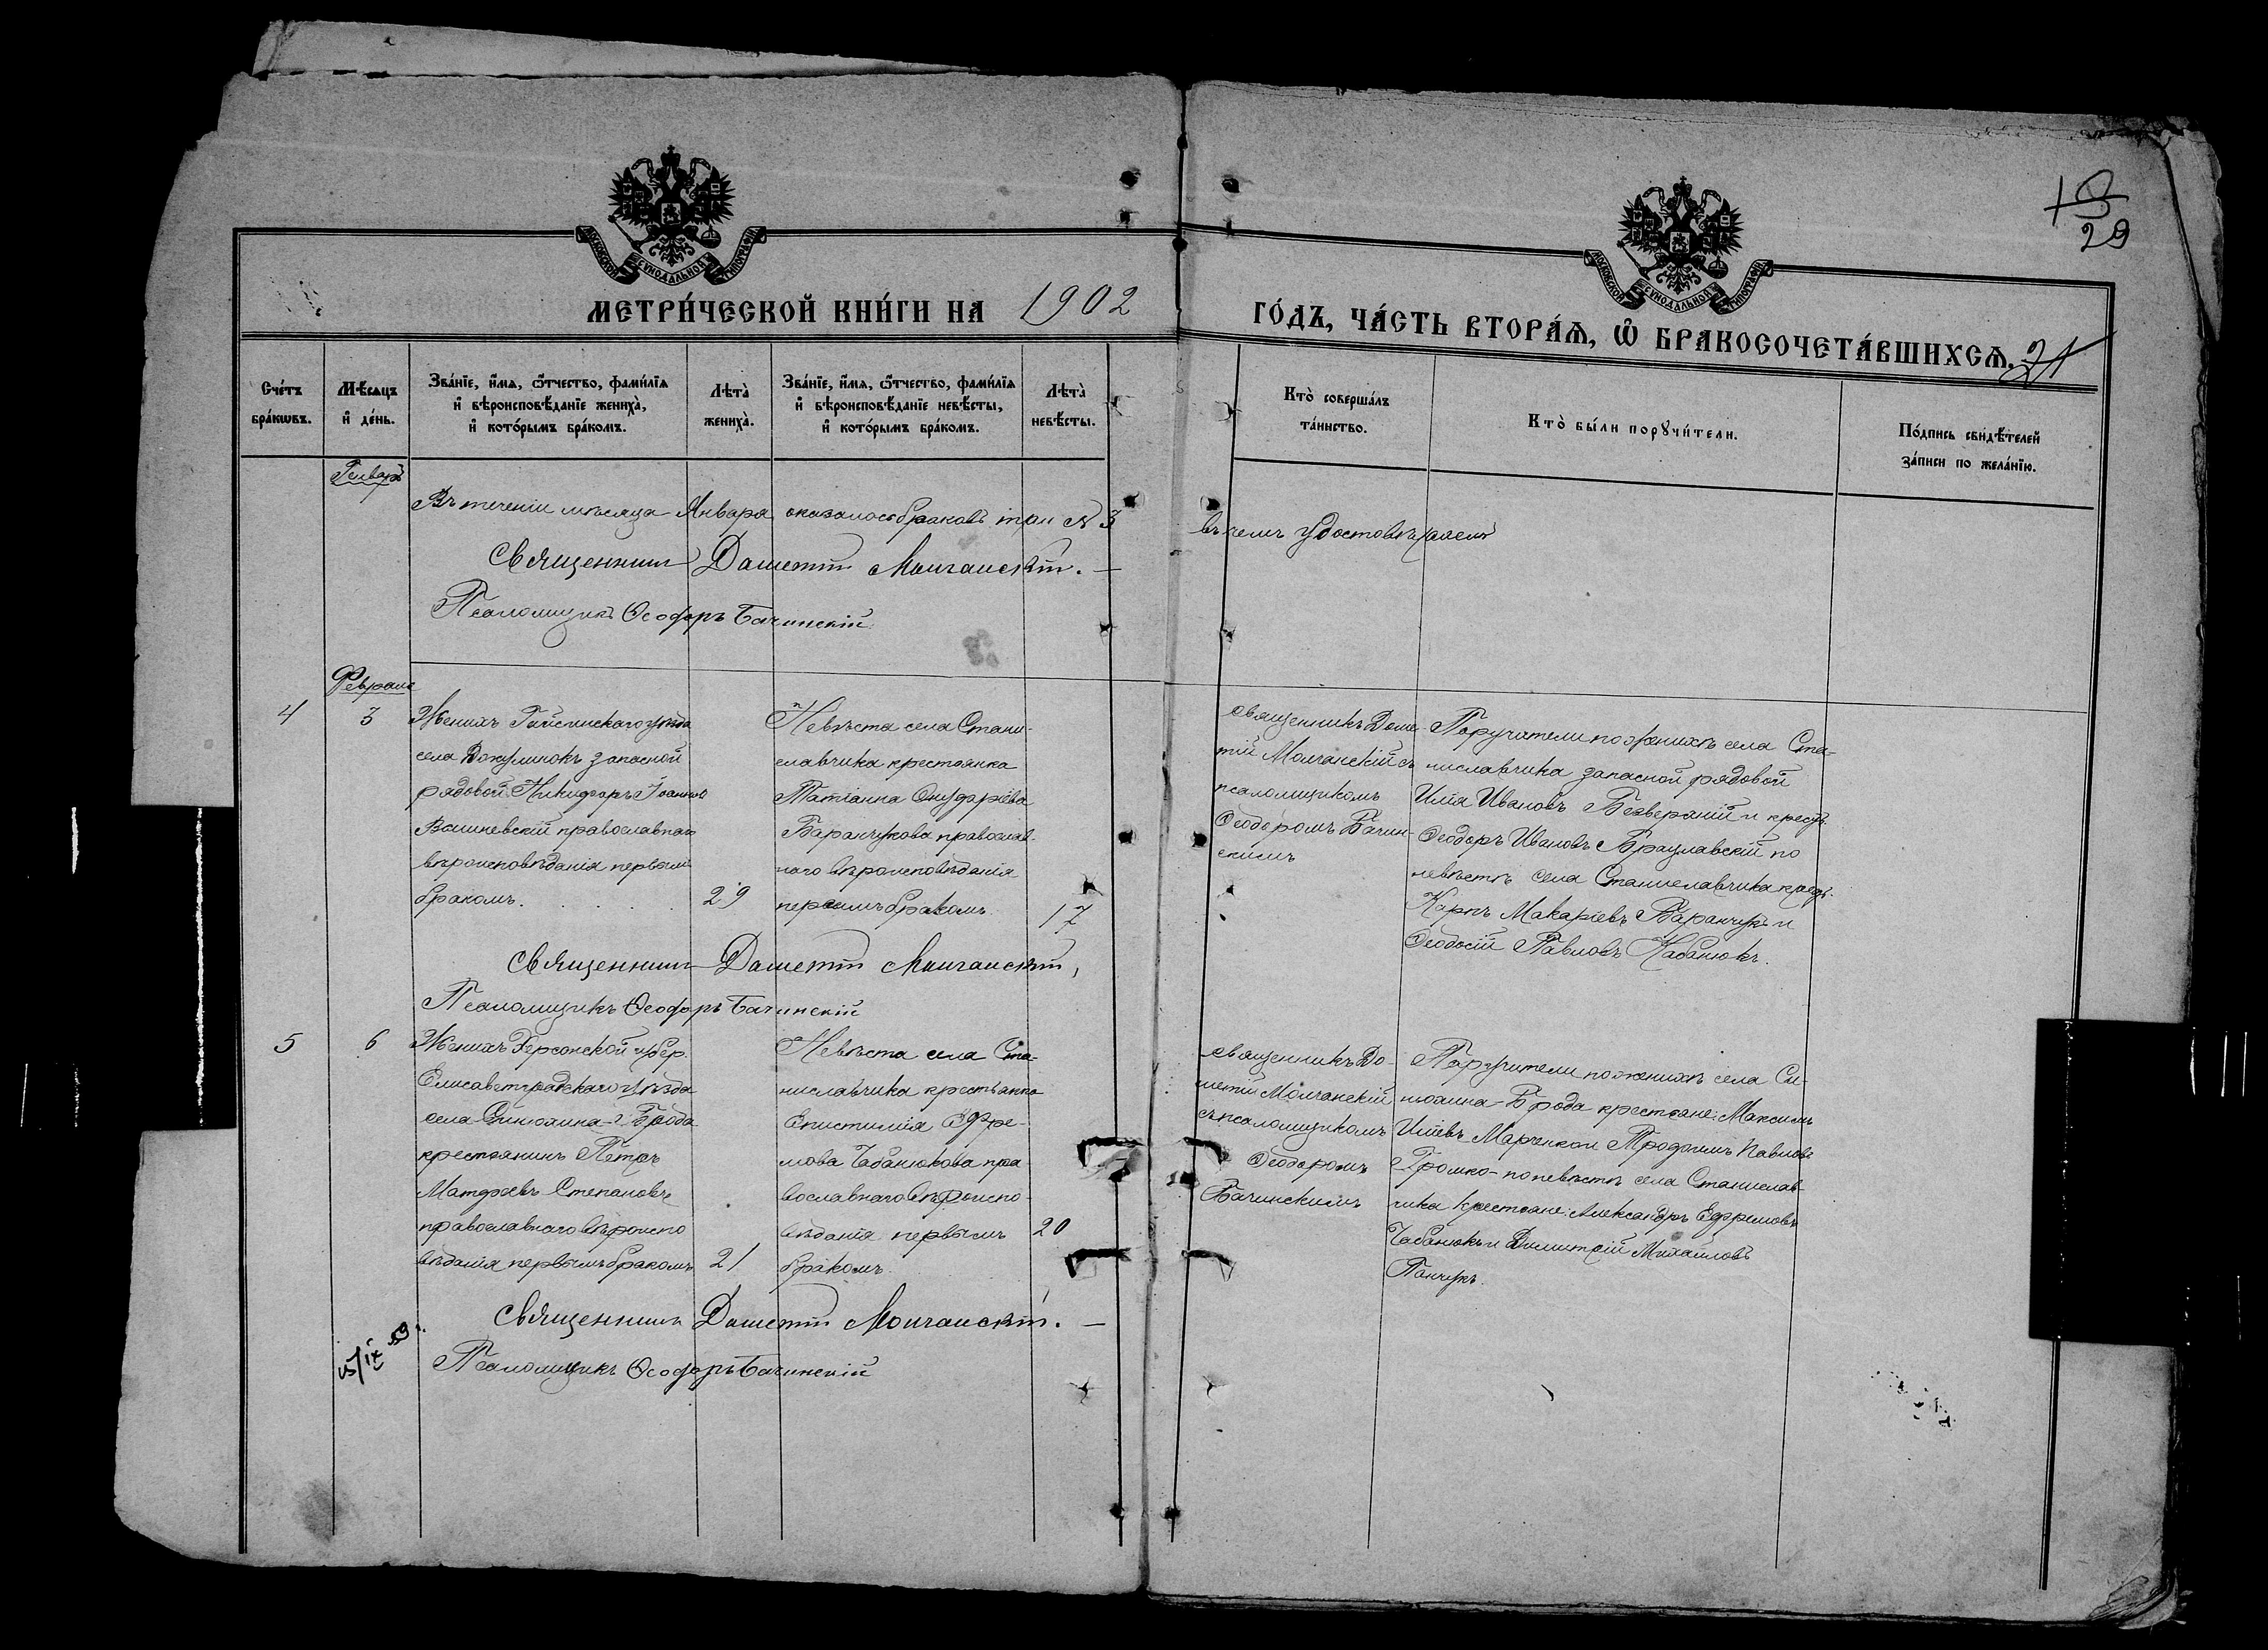 18
29
МОСКОВСКОЙ СѴНОДАЛЬНОЙ ТИПОГРАФІИ
МОСКОВСКОЙ СѴНОДАЛЬНОЙ ТИПОГРАФІИ
МЕТРИ́ЧЕСКОЙ КНИ́ГИ НА 1902
ГО́ДЪ, ЧА́СТЬ ВТОРА́Ѧ, Ѡ҆ БРАКОСОЧЕТА́ВШИХСѦ. 21
Сче́тъ бра́кѡвъ.
Мѣ́сѧцъ и҆ де́нь.
Зва́нїе, и҆́мѧ, ѻ҆́тчество, фами́лїѧ
и҆ вѣроисповѣ́данїе жениха̀,
и҆ кото́рымъ бра́комъ.
Лѣта̀ жениха̀.
Зва́нїе, и҆́мѧ, ѻ҆́тчество, фами́лїѧ
и҆ вѣроисповѣ́данїе невѣ́сты,
и҆ кото́рымъ бра́комъ.
Лѣта̀ невѣ́сты.
Кто̀ соверша́лъ та́инство.
Кто̀ бы́ли порꙋчи́тели.
По́дпись свидѣ́телей
за́писи по жела́нїю.
Январь
Въ теченіи мѣсяца Января оказалось браковъ три № 3
въ чемъ удостовѣряемъ
Священникъ Дометій Молчанскій. —
Псаломщикъ Ѳеодоръ Бачинскій
Февраль
4
3
Женихъ Гайсинскаго уѣзда
села Джулинокъ запасной
рядовой Никифоръ Іоанновъ
Вишневскій православнаго
вѣроисповѣданія первымъ
бракомъ.
29
Невѣста села Стани-
славчика крестьянка
Татіанна Онуфріева
Баранчукова православ-
наго вѣроисповѣданія
первымъ бракомъ
17
Священникъ Доме-
тій Молчанскій съ
псаломщикомъ
Ѳеодоромъ Бачин-
скимъ
Поручители по женихѣ села Ста-
ниславчика запасной рядовой
Илія Ивановъ Безверхній и крест.
Ѳеодоръ Ивановъ Брацлавскій по
невѣстѣ села Станиславчика крест.
Карпъ Макаріевъ Баранчукъ и
Ѳеодосій Павловъ Кабанюкъ.
Священникъ Дометій Молчанскій,
Псаломщикъ Ѳеодоръ Бачинскій
5
6
Женихъ Херсонской губер.
Елисаветградскаго уѣзда
села Синюхина-Брода
крестьянинъ Петръ
Матфѣевъ Степановъ
православнаго вѣроиспо
вѣданія первымъ бракомъ
21
Невѣста села Ста-
ниславчика крестьянка
Епистимія Ефре-
мова Чабанюкова пра
вославнаго вѣроиспо-
вѣданія первымъ
бракомъ
20
Священникъ До-
метій Молчанскій
съ псаломщикомъ
Ѳеодоромъ
Бачинскимъ
Поручители по женихѣ села Си-
нюхина-Брода крестьяне: Максимъ
Иліевъ Марченко и Трофимъ Павловъ
Громко - по невѣстѣ села Станислав-
чика крестьяне: Александръ Ефремовъ
Чабанюкъ и Димитрій Михайловъ
Панчукъ.
Священникъ Дометій Молчанскій. —
Псаломщикъ Ѳеодоръ Бачинскій